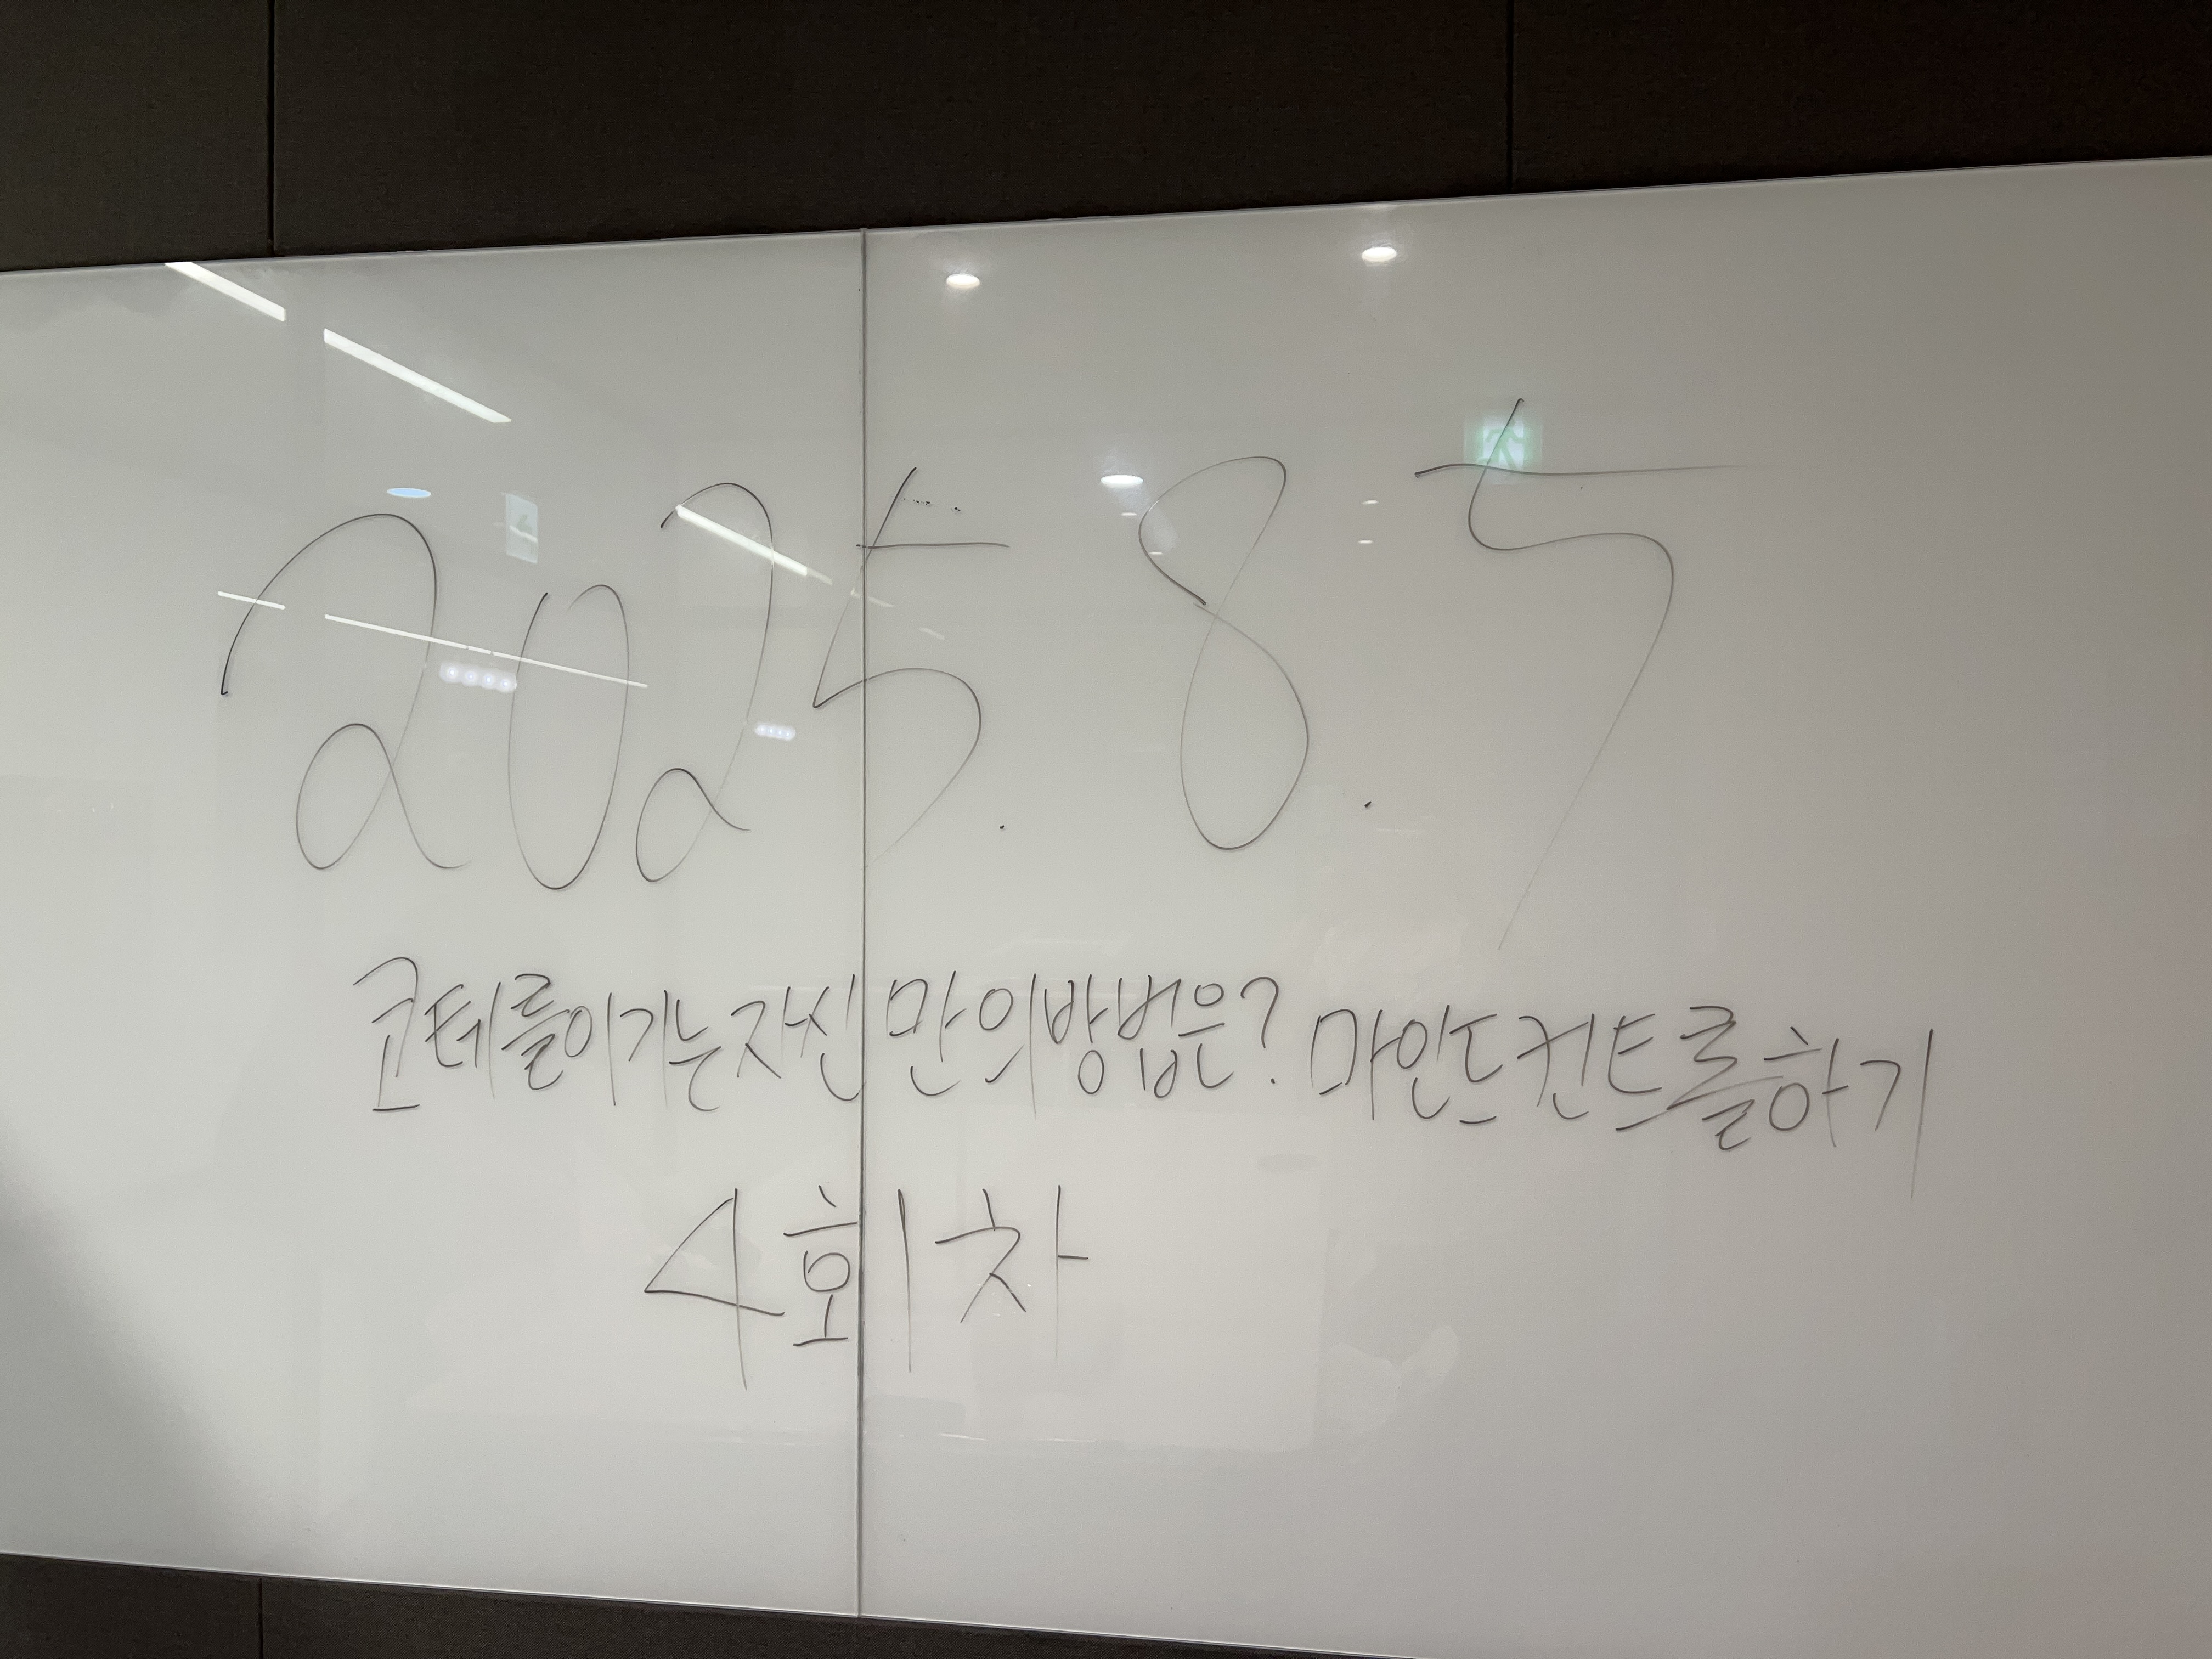 2025. 8. 5
코테를이기는자신만의방법은? 마인드컨트롤하기
4회차